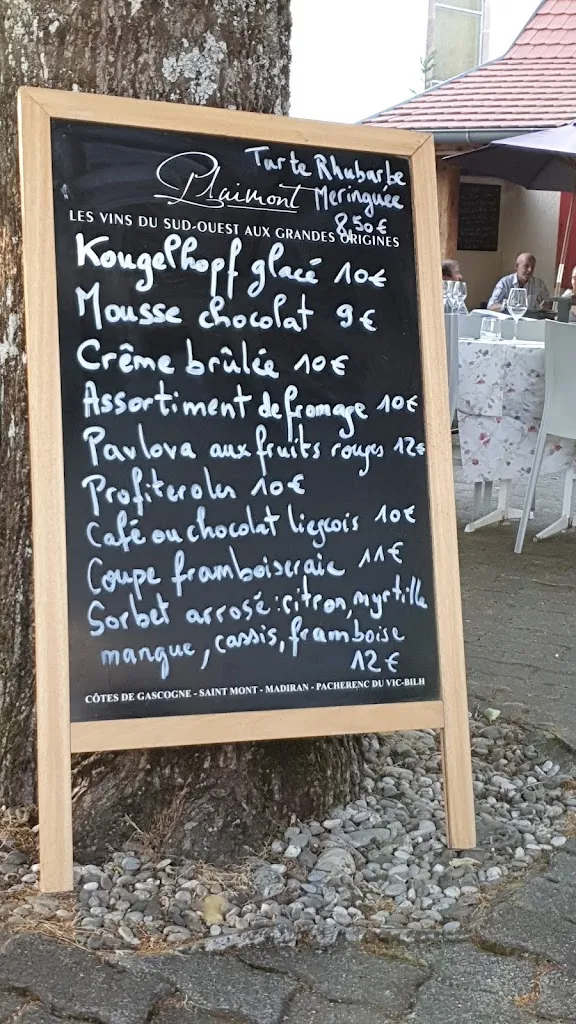 Tarte Rhubarbe
Plaimont Meringuée
8,50€
LES VINS DU SUD-OUEST AUX GRANDES ORIGINES
Kougelhopf glacé 10€
Mousse chocolat 9€
Crême brûlée 10€
Assortiment de fromage 10€
Pavlova aux fruits rouges 12€
Profiteroles 10€
Café ou chocolat liegeois 10€
Coupe framboiseraie 11€
Sorbet arrosé : citron, myrtille
mangue, cassis, framboise
12€
CÔTES DE GASCOGNE - SAINT MONT - MADIRAN - PACHERENC DU VIC-BILH